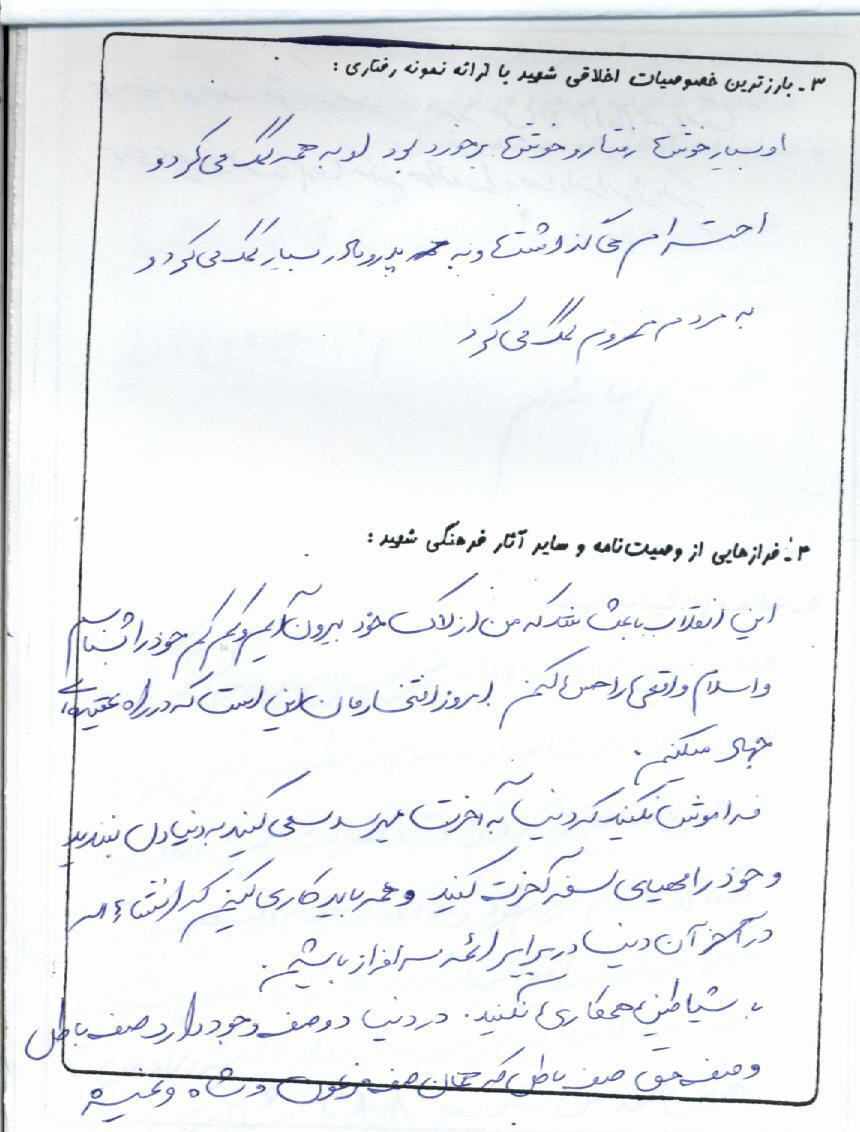 ۳ - بارزترین خصوصیات اخلاقی شهید با ارائه نمونه رفتاری :
او بسیار خوش رفتار و خوش برخورد بود او به همه کمک می کرد و
احترام می گذاشت و به پدر و مادر بسیار کمک می کرد و
به مردم محروم کمک می کرد
۴ - فرازهایی از وصیت‌نامه و سایر آثار فرهنگی شهید :
این انقلاب باعث شد که من از لاک خود بیرون آیم و کم کم خود را بشناسم
و اسلام واقعی را حس کنم امروز افتخارمان این است که در راه عقیده‌ای
جهاد میکنیم .
فراموش نکنید که دنیا به آخرت میرسد سعی کنید به دنیا دل نبندید
و خود را مهیای سفر آخرت کنید و همه باید کاری کنیم که انشاءاله
در آخر آن دنیا در برابر ائمه سرافراز باشیم .
با شیاطین همکاری نکنید . در دنیا دو صف وجود دارد صف باطل
و صف حق صف باطل که همان صف فرعون و شاه و غیره